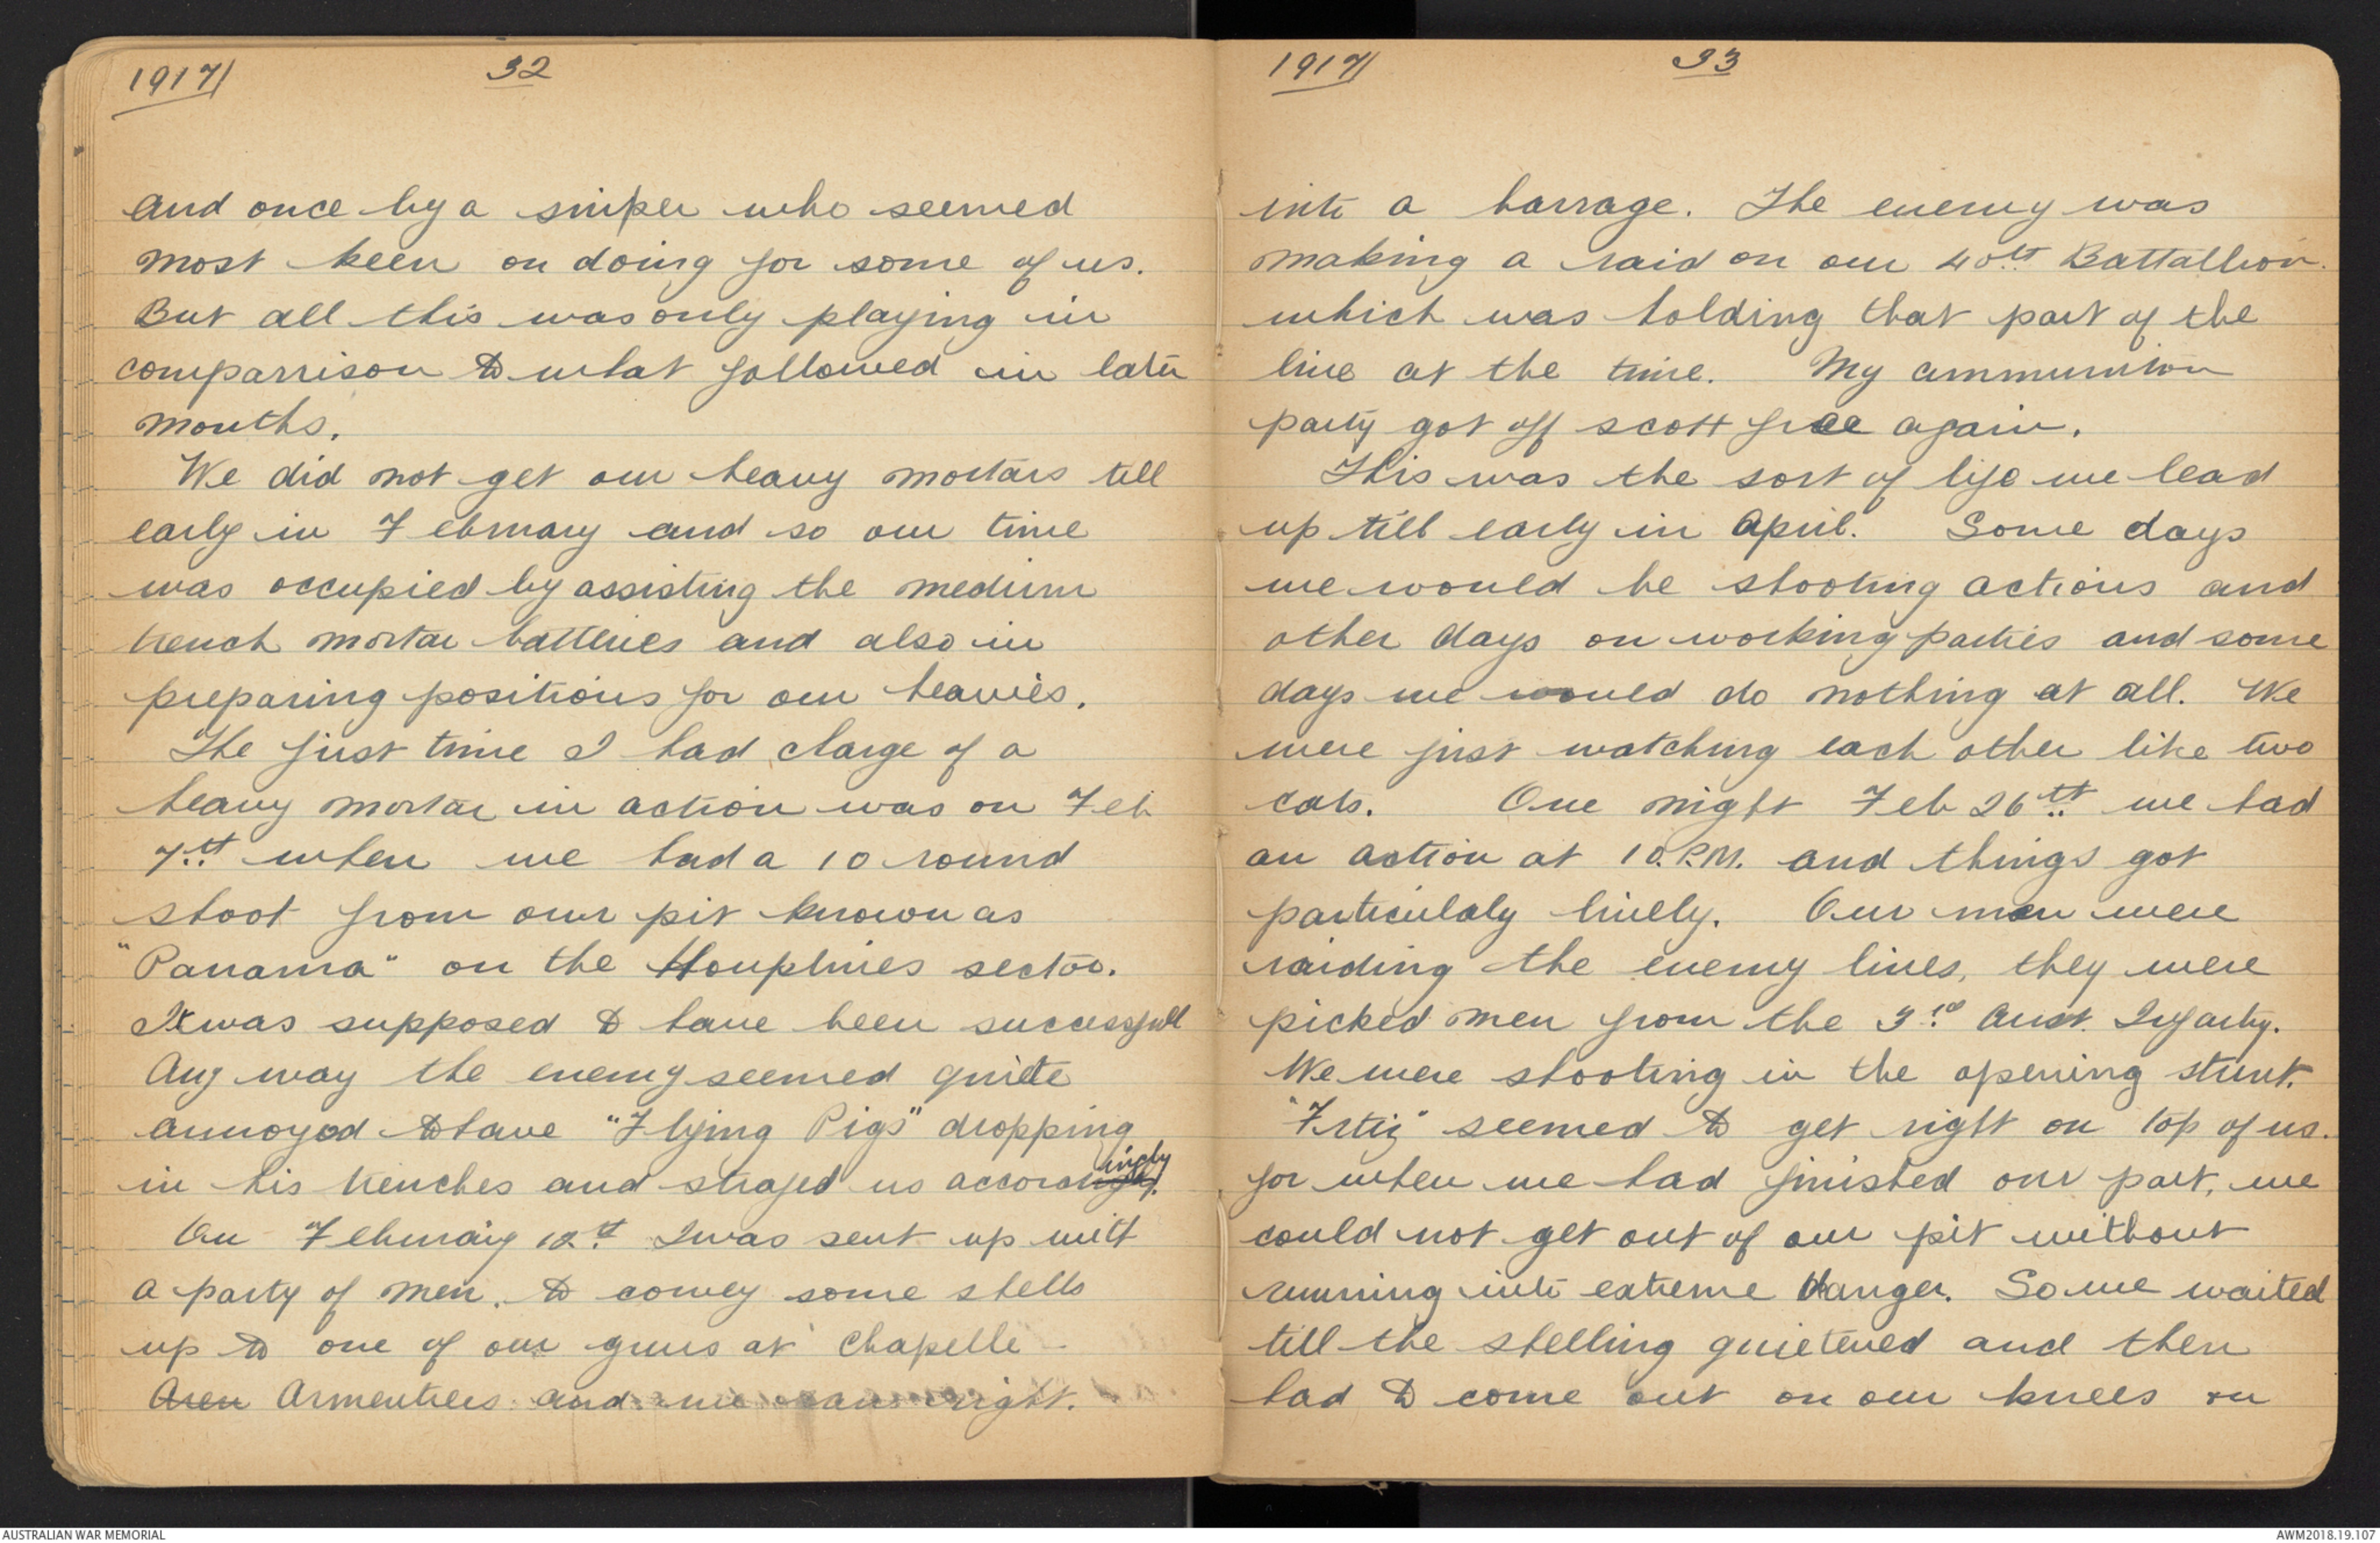 1917/ 32
and once by a sniper who seemed
most keen on doing for some of us.
But all this was only playing in
comparrison to what followed in later
months.
We did not get our heavy mortars till
early in February and so our time
was occupied by assisting the medium
trench mortar batteries and also in
preparing positions for our heavies.
The first time I had charge of a
heavy mortar in action was on Feb
7th when we had a 10 round
shoot from our pit known as
"Panama" on the Houplines sector.
It was supposed to have been successfull
Any way the enemy seemed quite
annoyed to have "Flying Pigs" dropping
in his trenches and strafed us accordingly.
On February 12th I was sent up with
a party of men, to convey some shells
up to one of our guns at Chapelle -
Armentiers and we ran right.
1917/ 33
into a barrage. The enemy was
making a raid on our 40th Battallion.
which was holding that part of the
line at the time. My ammunition
party got off scott free again.
This was the sort of life we lead
up till early in April. Some days
we would be shooting actions and
other days on working parties and some
days we would do nothing at all. We
were just watching each other like two
cats. One night Feb 26th we had
an action at 10.P.M. and things got
particulaly lively. Our men were
raiding the enemy lines, they were
picked men from the 3rd Aust. Infantry.
We were shooting in the opening stunt.
"Fritz" seemed to get right on top of us.
for when we had finished our part, we
could not get out of our pit without
running into extreme danger. So we waited
till the shelling quietened and then
had to come out on our knees on
AUSTRALIAN WAR MEMORIAL
AWM2018.19.107